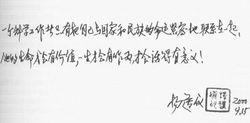 一个科学工作者只有把自己与国家和民族的命运紧密地联系在一起,
他的生命才会有价值,一生才会有作为,才会活得有意义!
2000
9.15